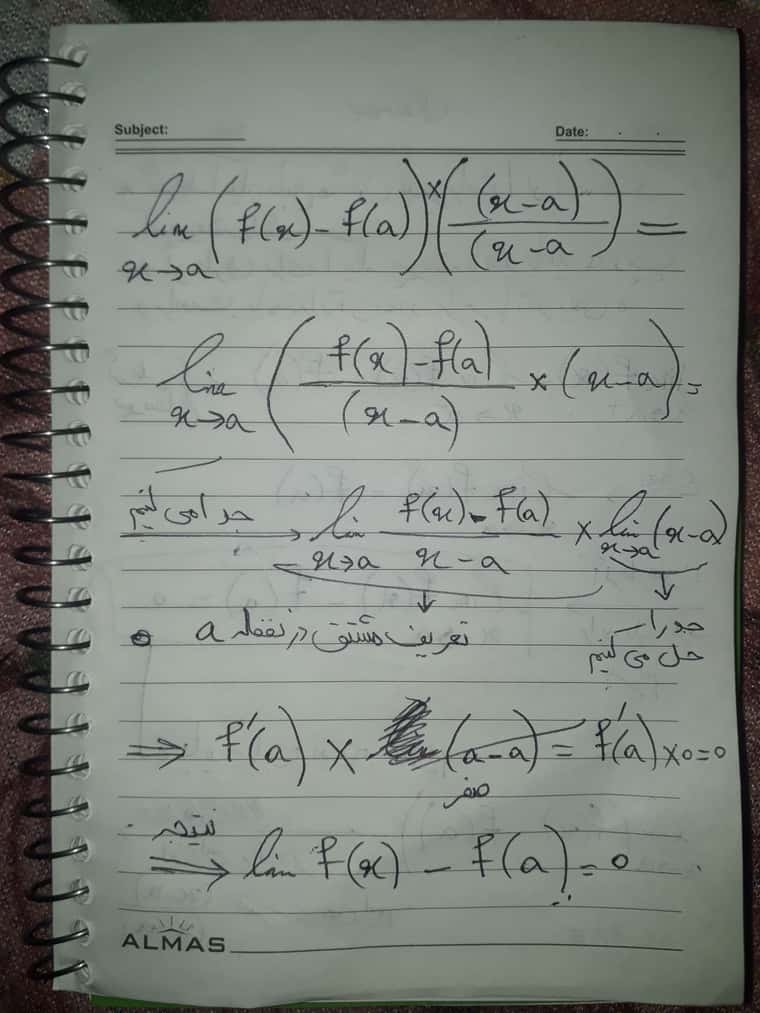 Subject: Date: . .
lim x→a (f(x) - f(a)) × ((x-a) / (x-a) =
lim x→a (f(x) - f(a) / (x-a) × (x-a) =
جدا می کنیم → lim x→a f(x) - f(a) / x-a × lim x→a (x-a)
↓ ↓
تعریف مشتق در نقطه a جدا
حل می کنیم
⇒ f'(a) × (a-a) = f'(a) × 0 = 0
صفر
نتیجه ⇒ lim f(x) - f(a) = 0
ALMAS